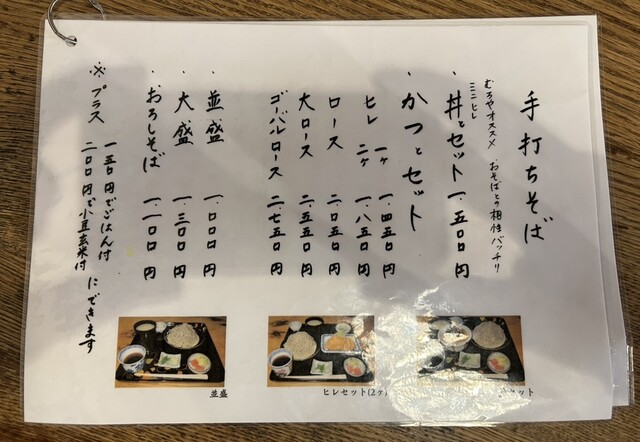 手打ちそば
むろやオススメ おそばとの相性バッチリ
ミニヒレ
・丼とセット 一.五〇〇円
・かつとセット
ヒレ 一ヶ 一.四五〇円
二ヶ 一.八五〇円
ロース 二.〇五〇円
大ロース 二.五五〇円
ゴーバルロース 二.七五〇円
・並盛 一.〇〇〇円
・大盛 一.三〇〇円
・おろしそば 一.一〇〇円
※プラス 一五〇円でごはん付
二〇〇円で小豆玄米付
にできます
並盛
ヒレセット(2ヶ)
セット